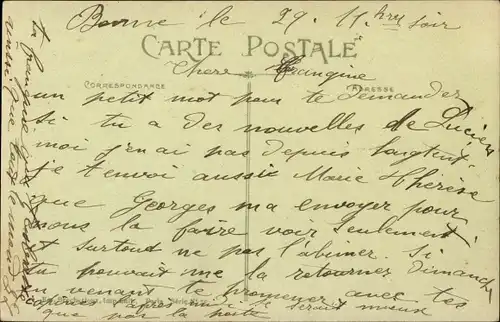 Beaune le 29. 11 hres soir
CARTE POSTALE
CORRESPONDANCE
ADRESSE
Chere frangine
un petit mot pour te demander
si tu a des nouvelles de Lucien
moi j'en ai pas depuis longtent.
je t'envoi aussi Marie Thérèse
que Georges m'a envoyer pour
nous la faire voir seulement
et surtout ne pas l'abimer. Si
tu pouvait me la retourner dimanche
en venant te promener avec tes
après midi se serait mieux
que par la poste
ta frangine qui
ainsi que tout le monde